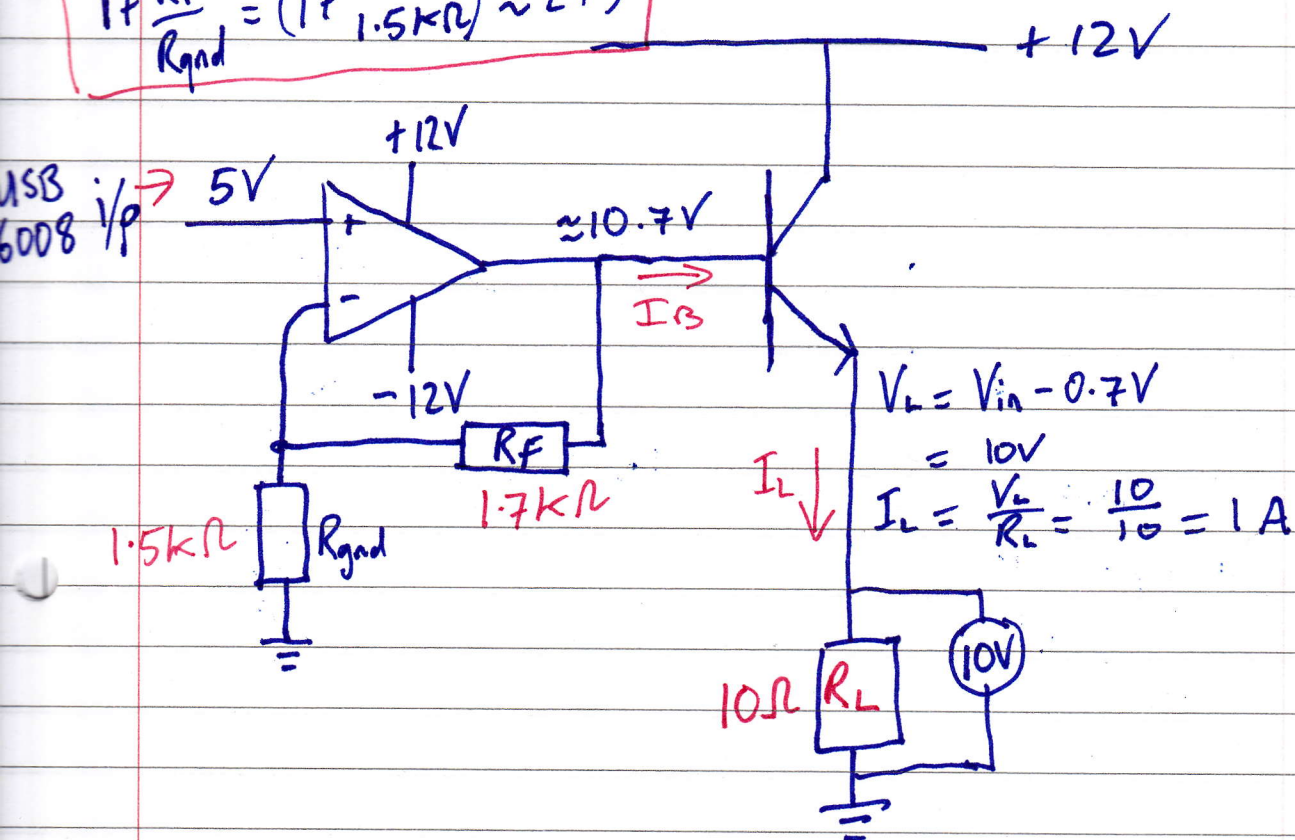 1+ RF/Rgnd = (1+ 1.5kΩ) ~ 2
+12V
+12V
USB 6008 i/p → 5V
+
-
≈10.7V
IB
-12V
RF
1.7kΩ
1.5kΩ Rgnd
VL = Vin - 0.7V
= 10V
IL
IL = VL/RL = 10/10 = 1 A
10Ω RL
10V